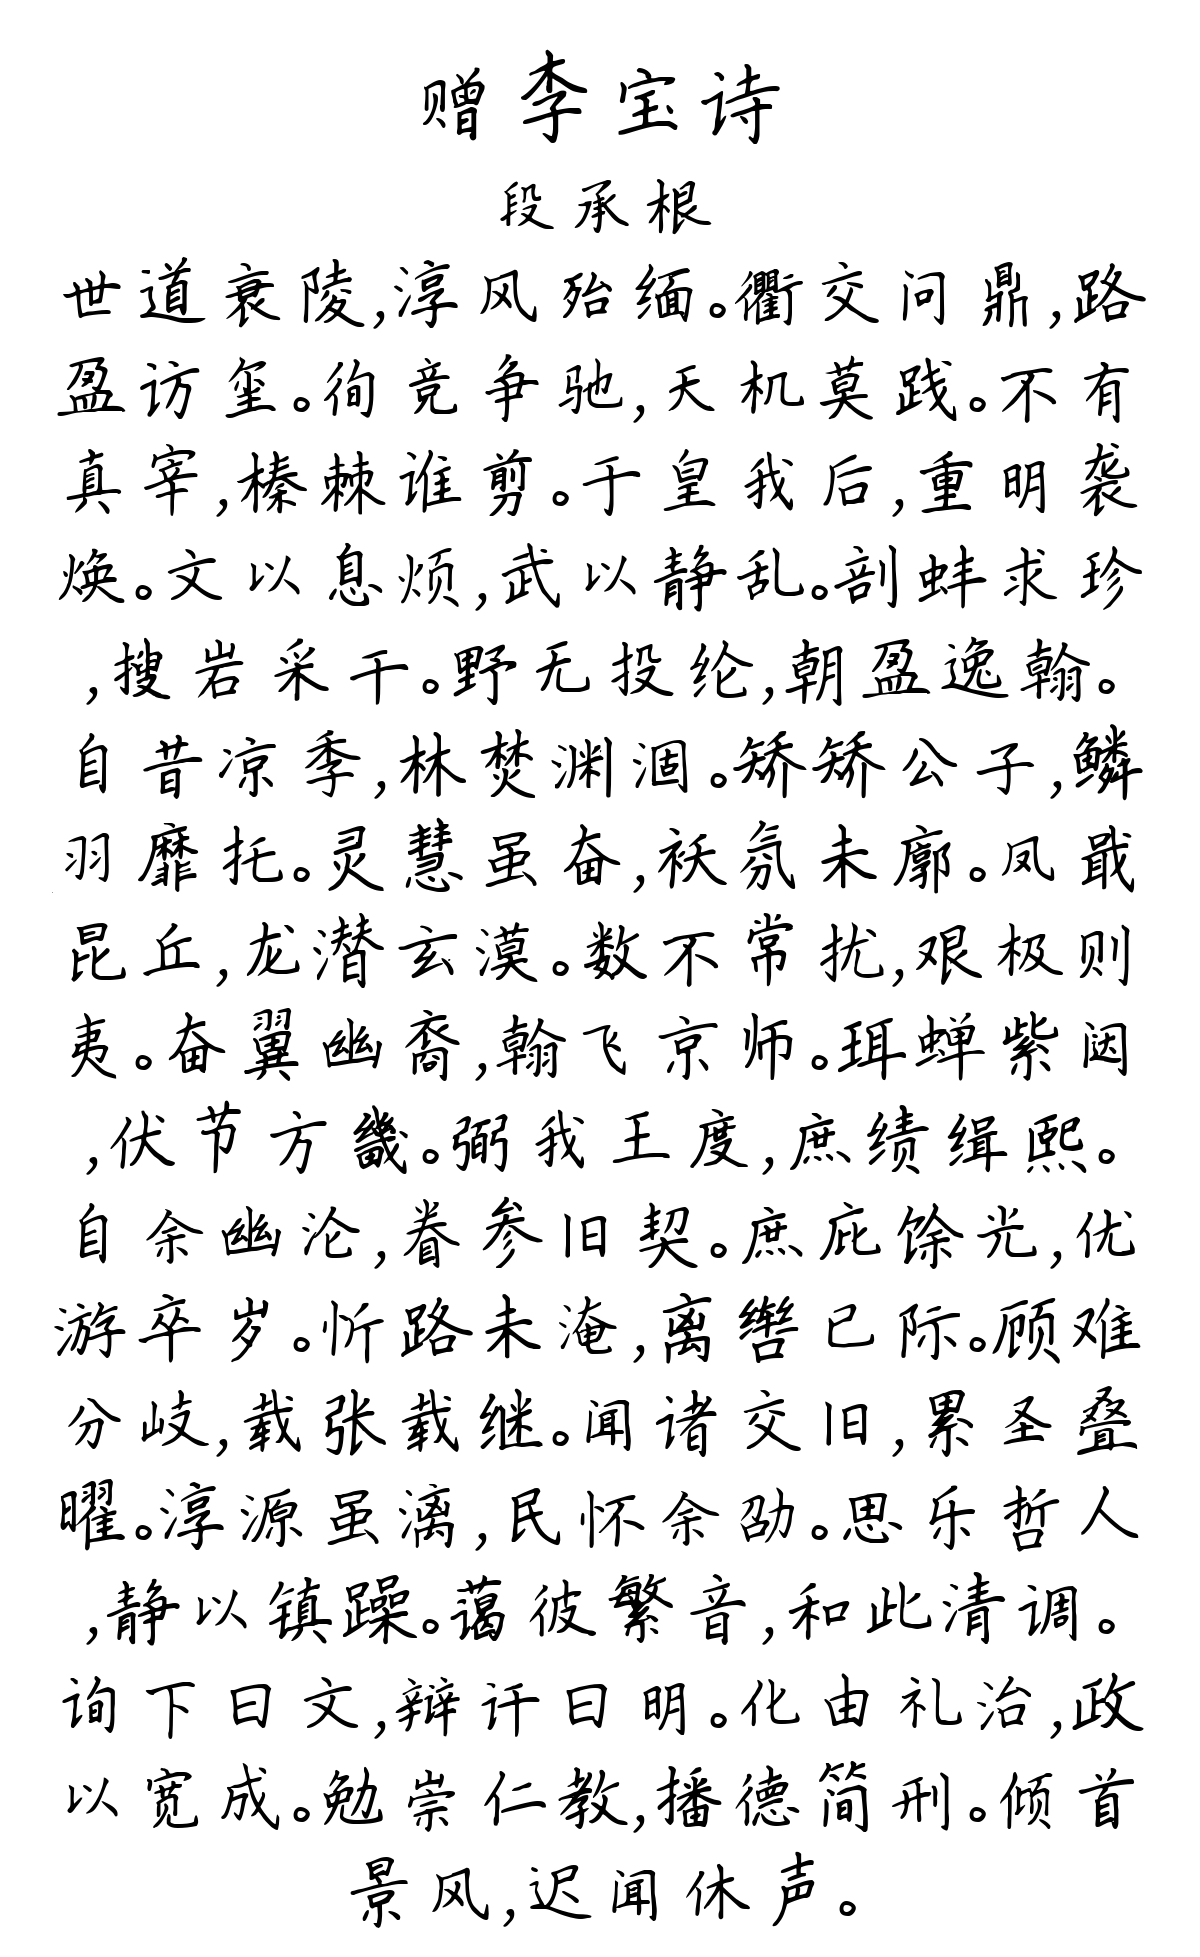 赠李宝诗
段承根
世道衰陵,淳风殆缅。衢交问鼎,路
盈访玺。徇竞争驰,天机莫践。不有
真宰,榛棘谁剪。于皇我后,重明袭
焕。文以息烦,武以静乱。剖蚌求珍
,搜岩采干。野无投纶,朝盈逸翰。
自昔凉季,林焚渊涸。矫矫公子,鳞
羽靡托。灵慧虽奋,袄氛未廓。凤戢
昆丘,龙潜玄漠。数不常扰,艰极则
夷。奋翼幽裔,翰飞京师。珥蝉紫闼
,伏节方畿。弼我王度,庶绩缉熙。
自余幽沦,眷参旧契。庶庇馀光,优
游卒岁。忻路未淹,离辔已际。顾难
分歧,载张载继。闻诸交旧,累圣叠
曜。淳源虽漓,民怀余劭。思乐哲人
,静以镇躁。蔼彼繁音,和此清调。
询下曰文,辩讦曰明。化由礼治,政
以宽成。勉崇仁教,播德简刑。倾首
景风,迟闻休声。